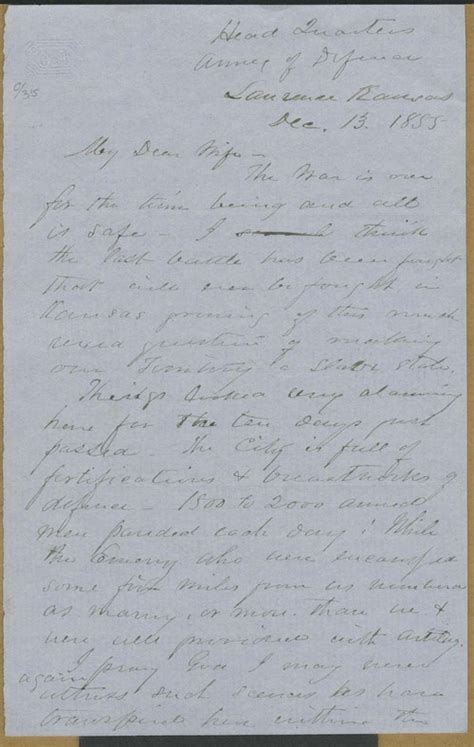 Head Quarters
Army of Defence
Lawrence Kansas
Dec. 13. 1855
My Dear Wife –
The War is over
for the time being and all
is safe – I think
the last battle has been fought
that will ever be fought in
Kansas growing of this much
vexed question of making
our Territory a Slave State.
Things looked very alarming
here for the ten days just
passed – The City is full of
fortifications & breastworks of
defence – 1500 to 2000 armed
men paraded each day! While
the Enemy who were encamped
some five miles from us numbered
as many, or more than we &
were well provided with artillery.
I pray God I may never
again
witness such scenes as have
transpired here within the